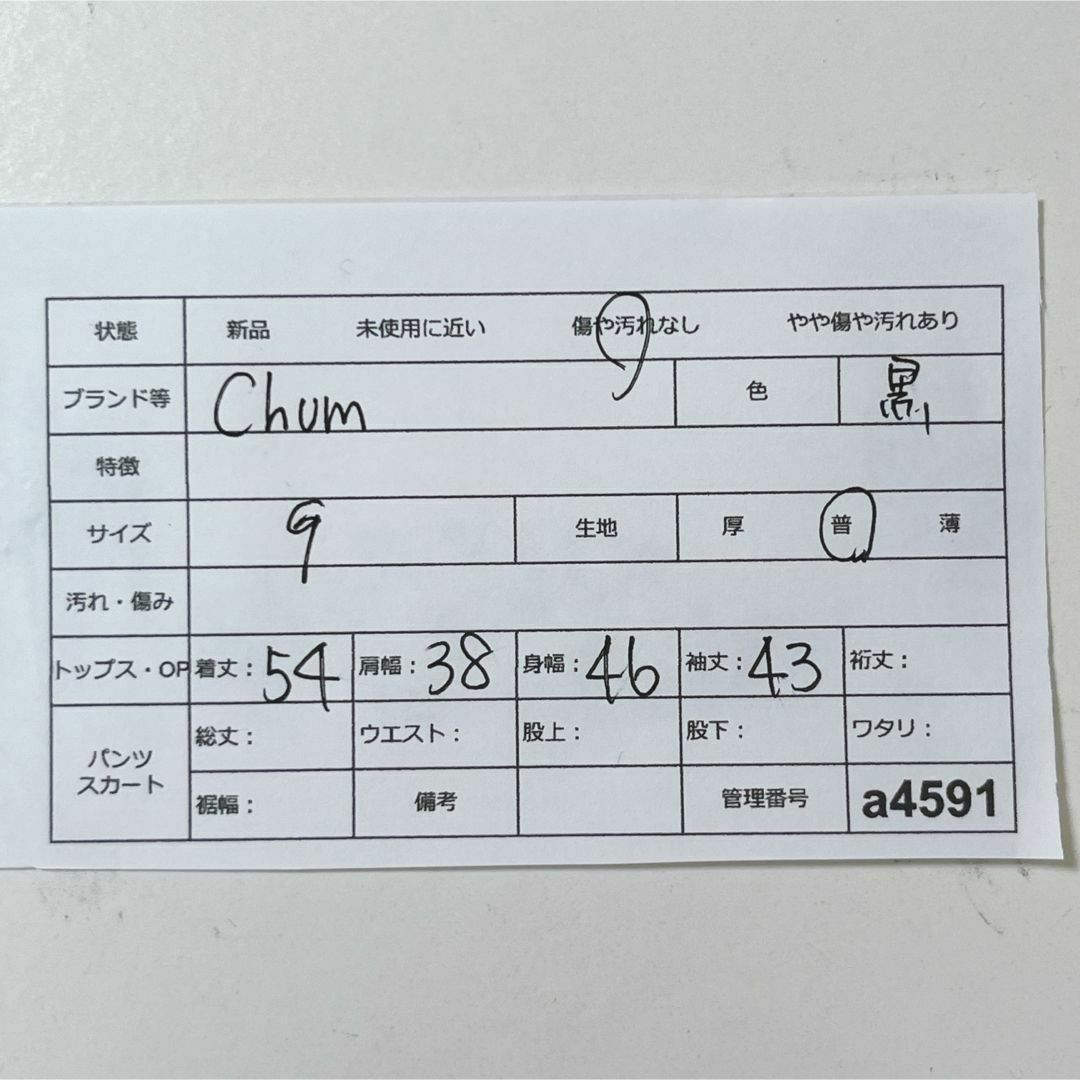 状態 新品 未使用に近い 傷や汚れなし やや傷や汚れあり
ブランド等 Chum 色 黒
特徴
サイズ 9 生地 厚 普 薄
汚れ・傷み
トップス・OP 着丈：54 肩幅：38 身幅：46 袖丈：43 裄丈：
パンツ スカート 総丈： ウエスト： 股上： 股下： ワタリ：
裾幅： 備考 管理番号 a4591